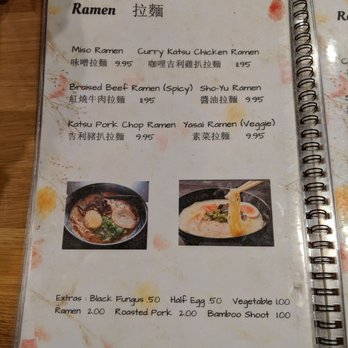 Ramen 拉麵
Miso Ramen Curry Katsu Chicken Ramen
味噌拉麵 9.95 咖哩吉利雞扒拉麵 11.95
Braised Beef Ramen (Spicy) Sho-Yu Ramen
紅燒牛肉拉麵 11.95 醬油拉麵 9.95
Katsu Pork Chop Ramen Yasai Ramen (Veggie)
吉利豬扒拉麵 9.95 素菜拉麵 9.95
Extras : Black Fungus .50 Half Egg .50 Vegetable 1.00
Ramen 2.00 Roasted Pork 2.00 Bamboo Shoot 1.00